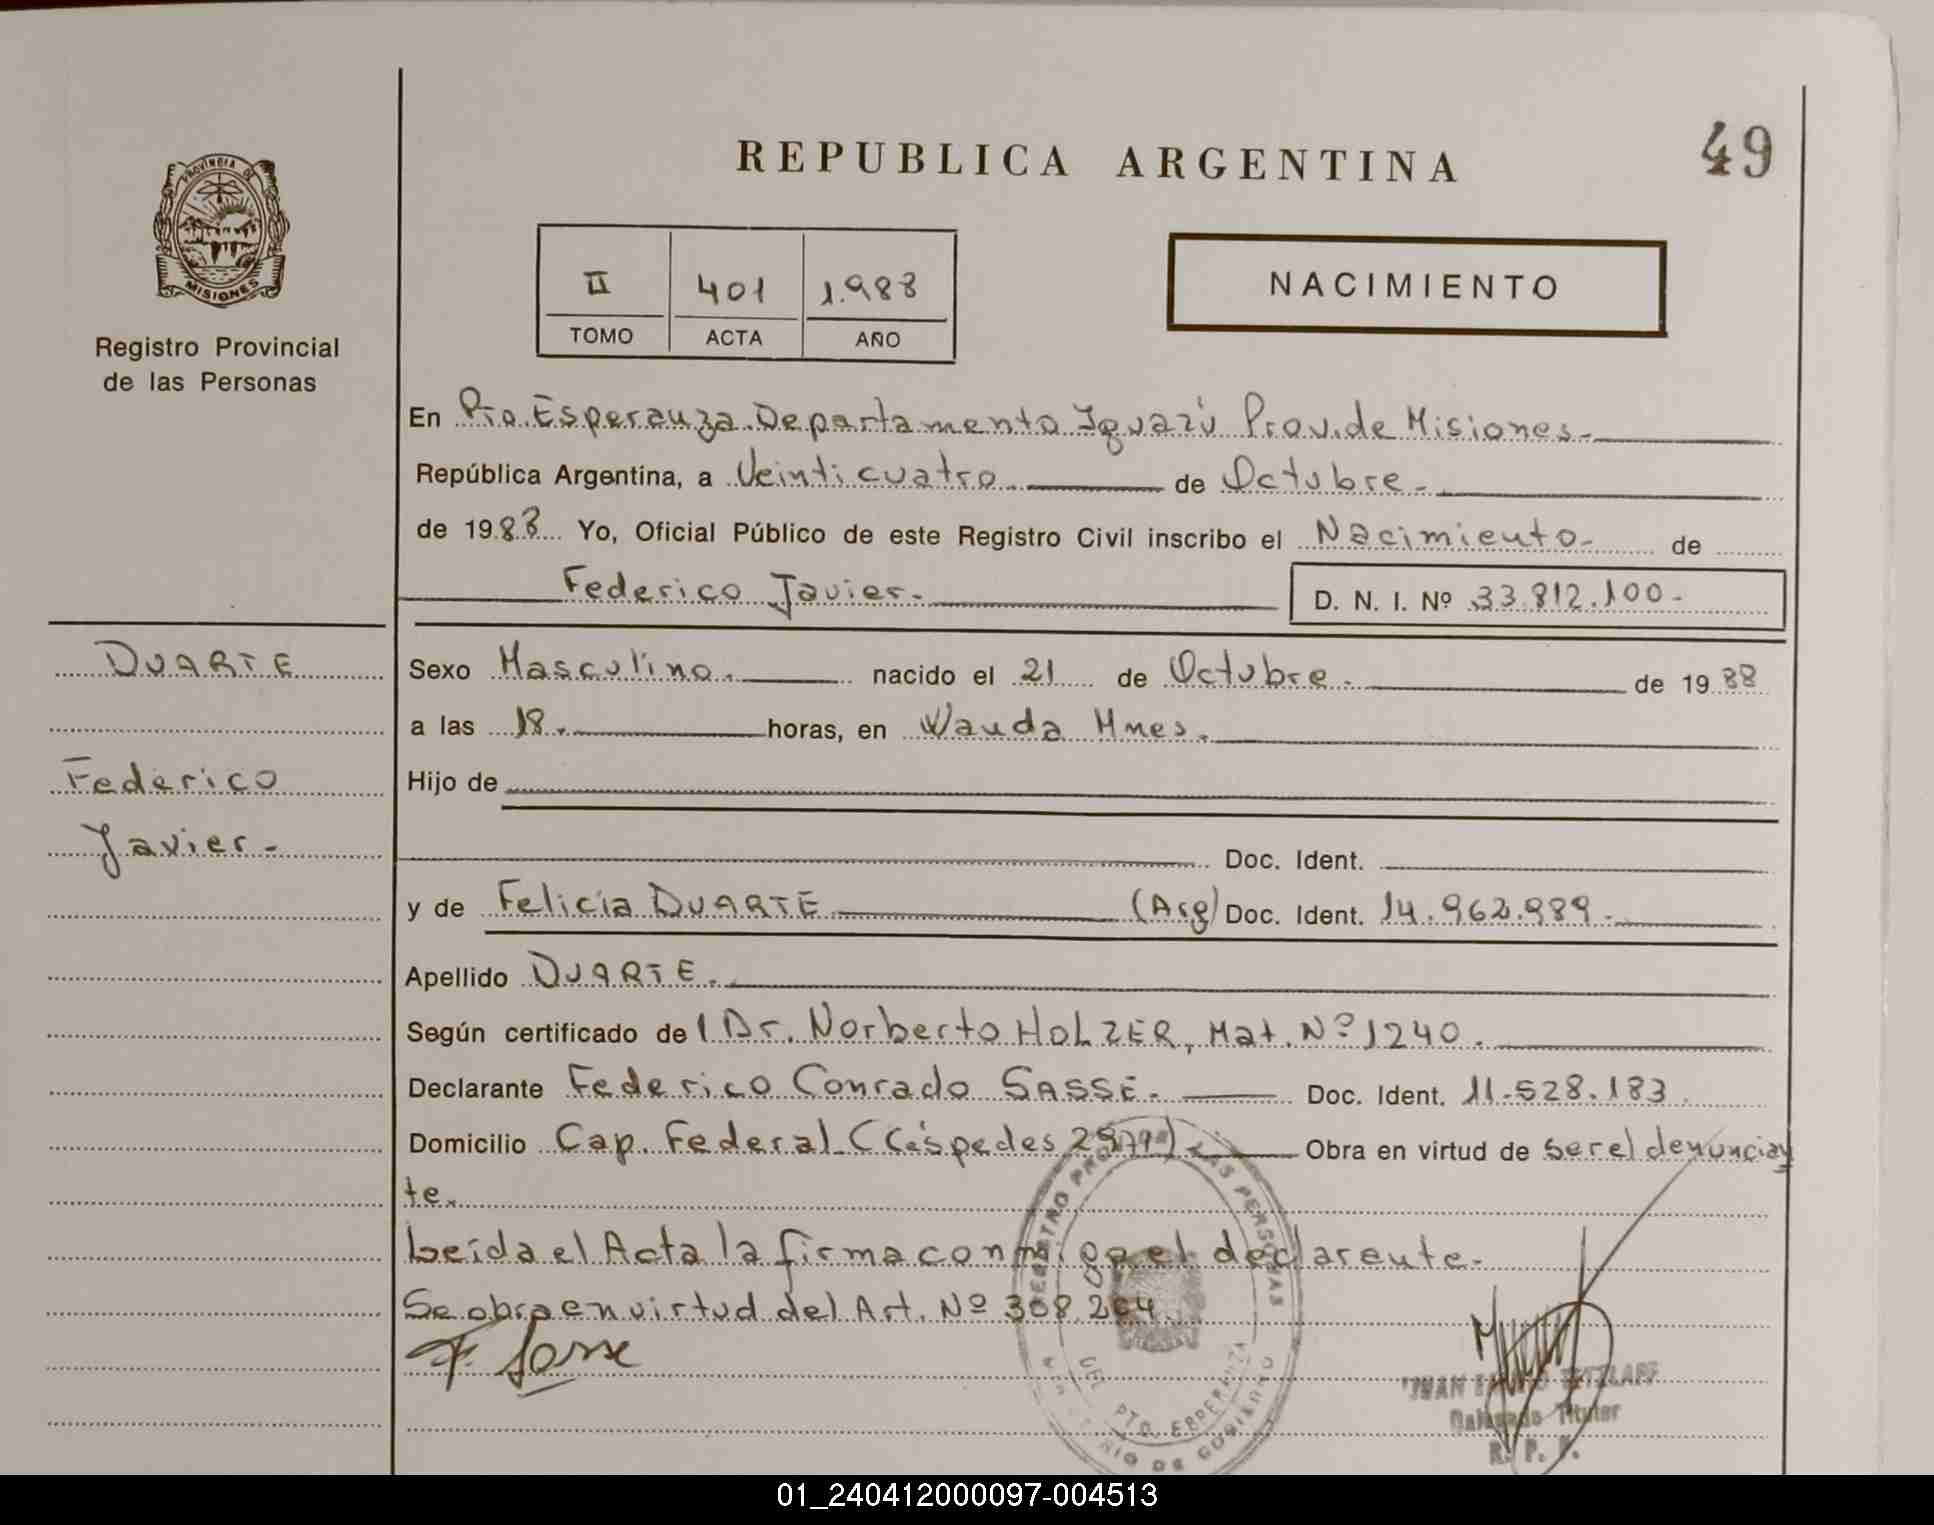 PROVINCIA DE
MISIONES
Registro Provincial
de las Personas
REPUBLICA ARGENTINA
49
II 401 1.988
TOMO ACTA AÑO
NACIMIENTO
En Pto. Esperanza. Departamento Iguazú Prov. de Misiones.
República Argentina, a Veinticuatro de Octubre.
de 1988 Yo, Oficial Público de este Registro Civil inscribo el Nacimiento. de
Federico Javier. D. N. I. Nº 33.812.100.
DUARTE
Federico
Javier.
Sexo Masculino. nacido el 21 de Octubre. de 1988
a las 18. horas, en Wanda Mnes.
Hijo de
Doc. Ident.
y de Felicia DUARTE (Arg) Doc. Ident. 14.962.989.
Apellido DUARTE.
Según certificado del Dr. Norberto HOLZER, Mat. Nº 1240.
Declarante Federico Conrado SASSE. Doc. Ident. 11.528.183
Domicilio Cap. Federal (Céspedes Obra en virtud de ser el denuncian
te.
Leída el Acta la firma conmigo el declarante.
Se obra en virtud del Art. Nº 308.204.
F. Sasse
REGISTRO PROV DE LAS PERSONAS
DEL PTO. ESPERANZA
MINISTERIO DE GOBIERNO
JUAN
Delegado Titular
R. P. P.
01_240412000097-004513